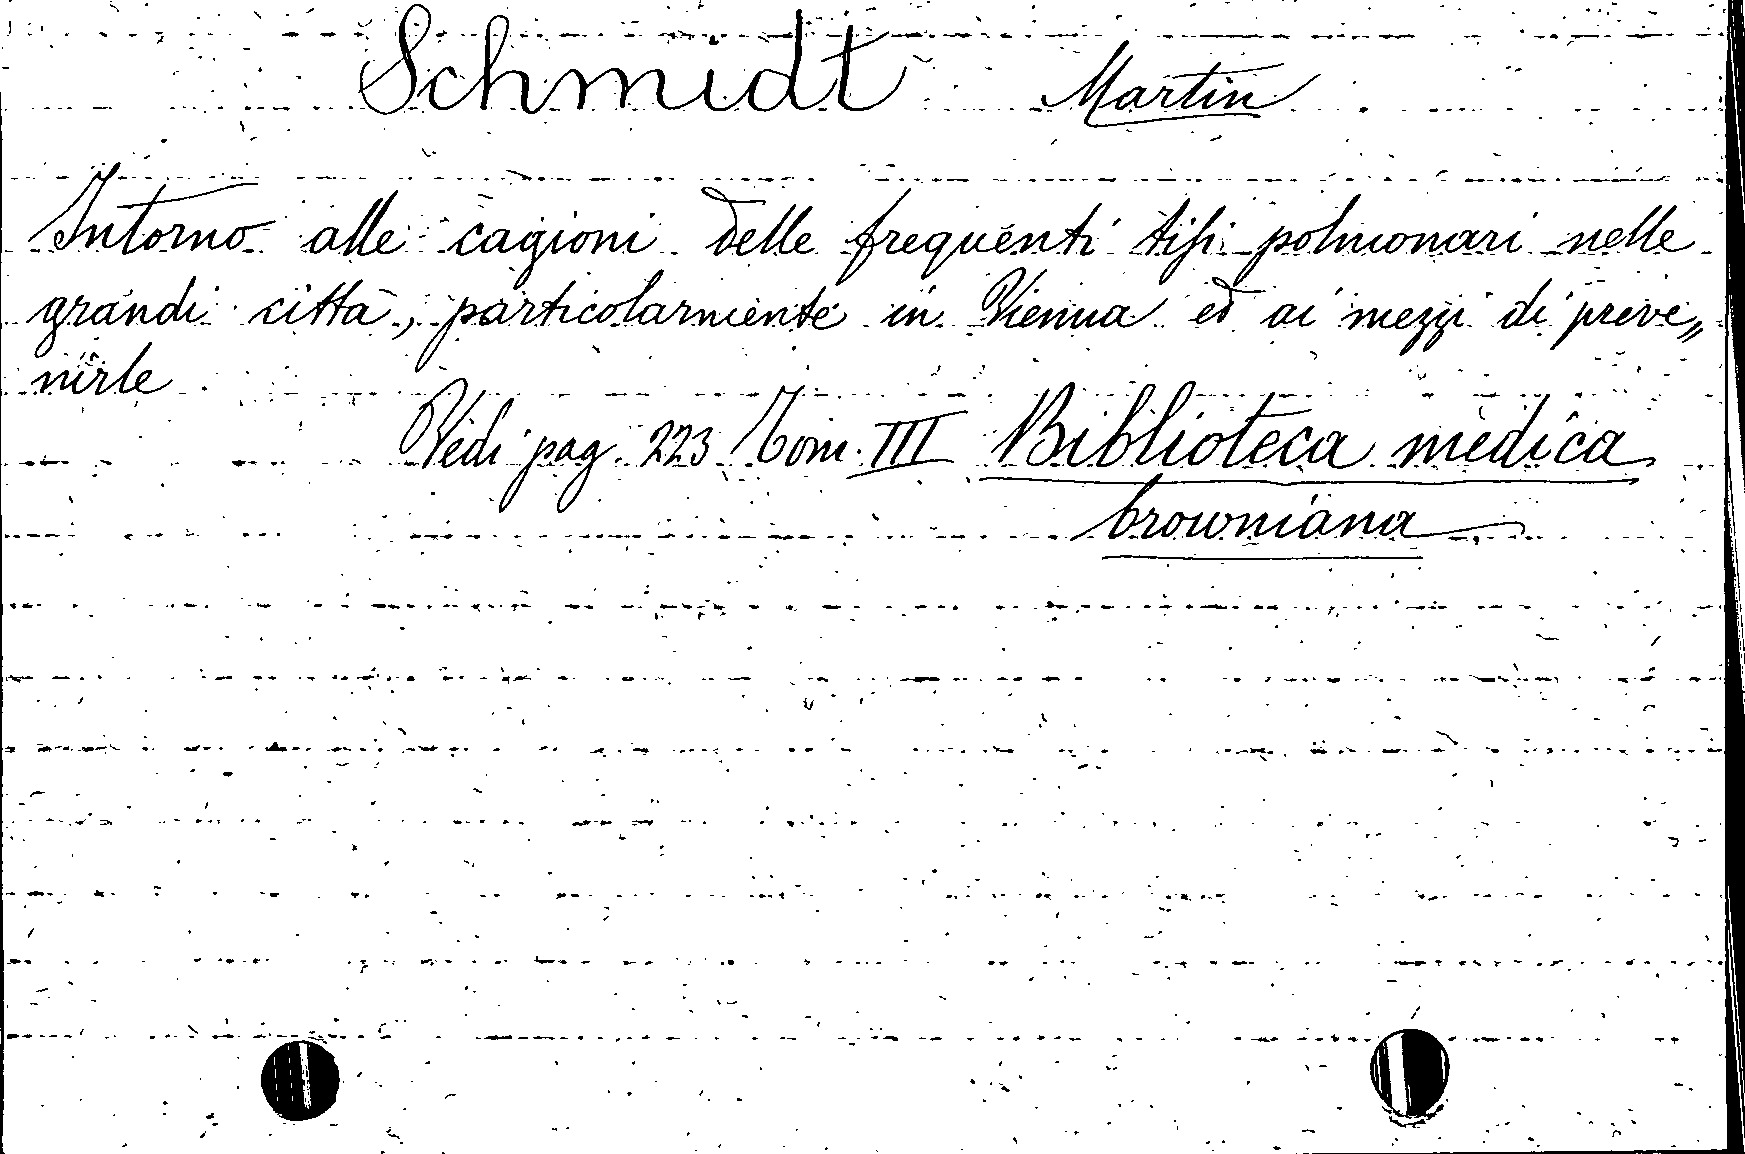 Schmidt Martin
Intorno alle cagioni delle frequenti tisi polmonari nelle
grandi città, particolarmente in Vienna ed ai mezzi di preve„
nirle.
Vedi pag. 223 Tom. III Biblioteca medica
browniana